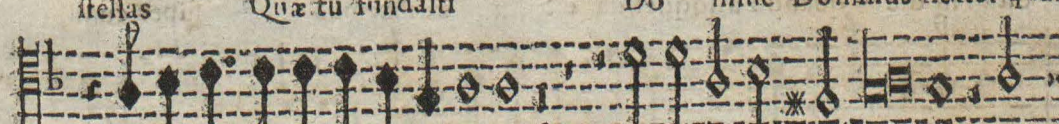 stellas Quæ tu fundasti Do mine Dominus